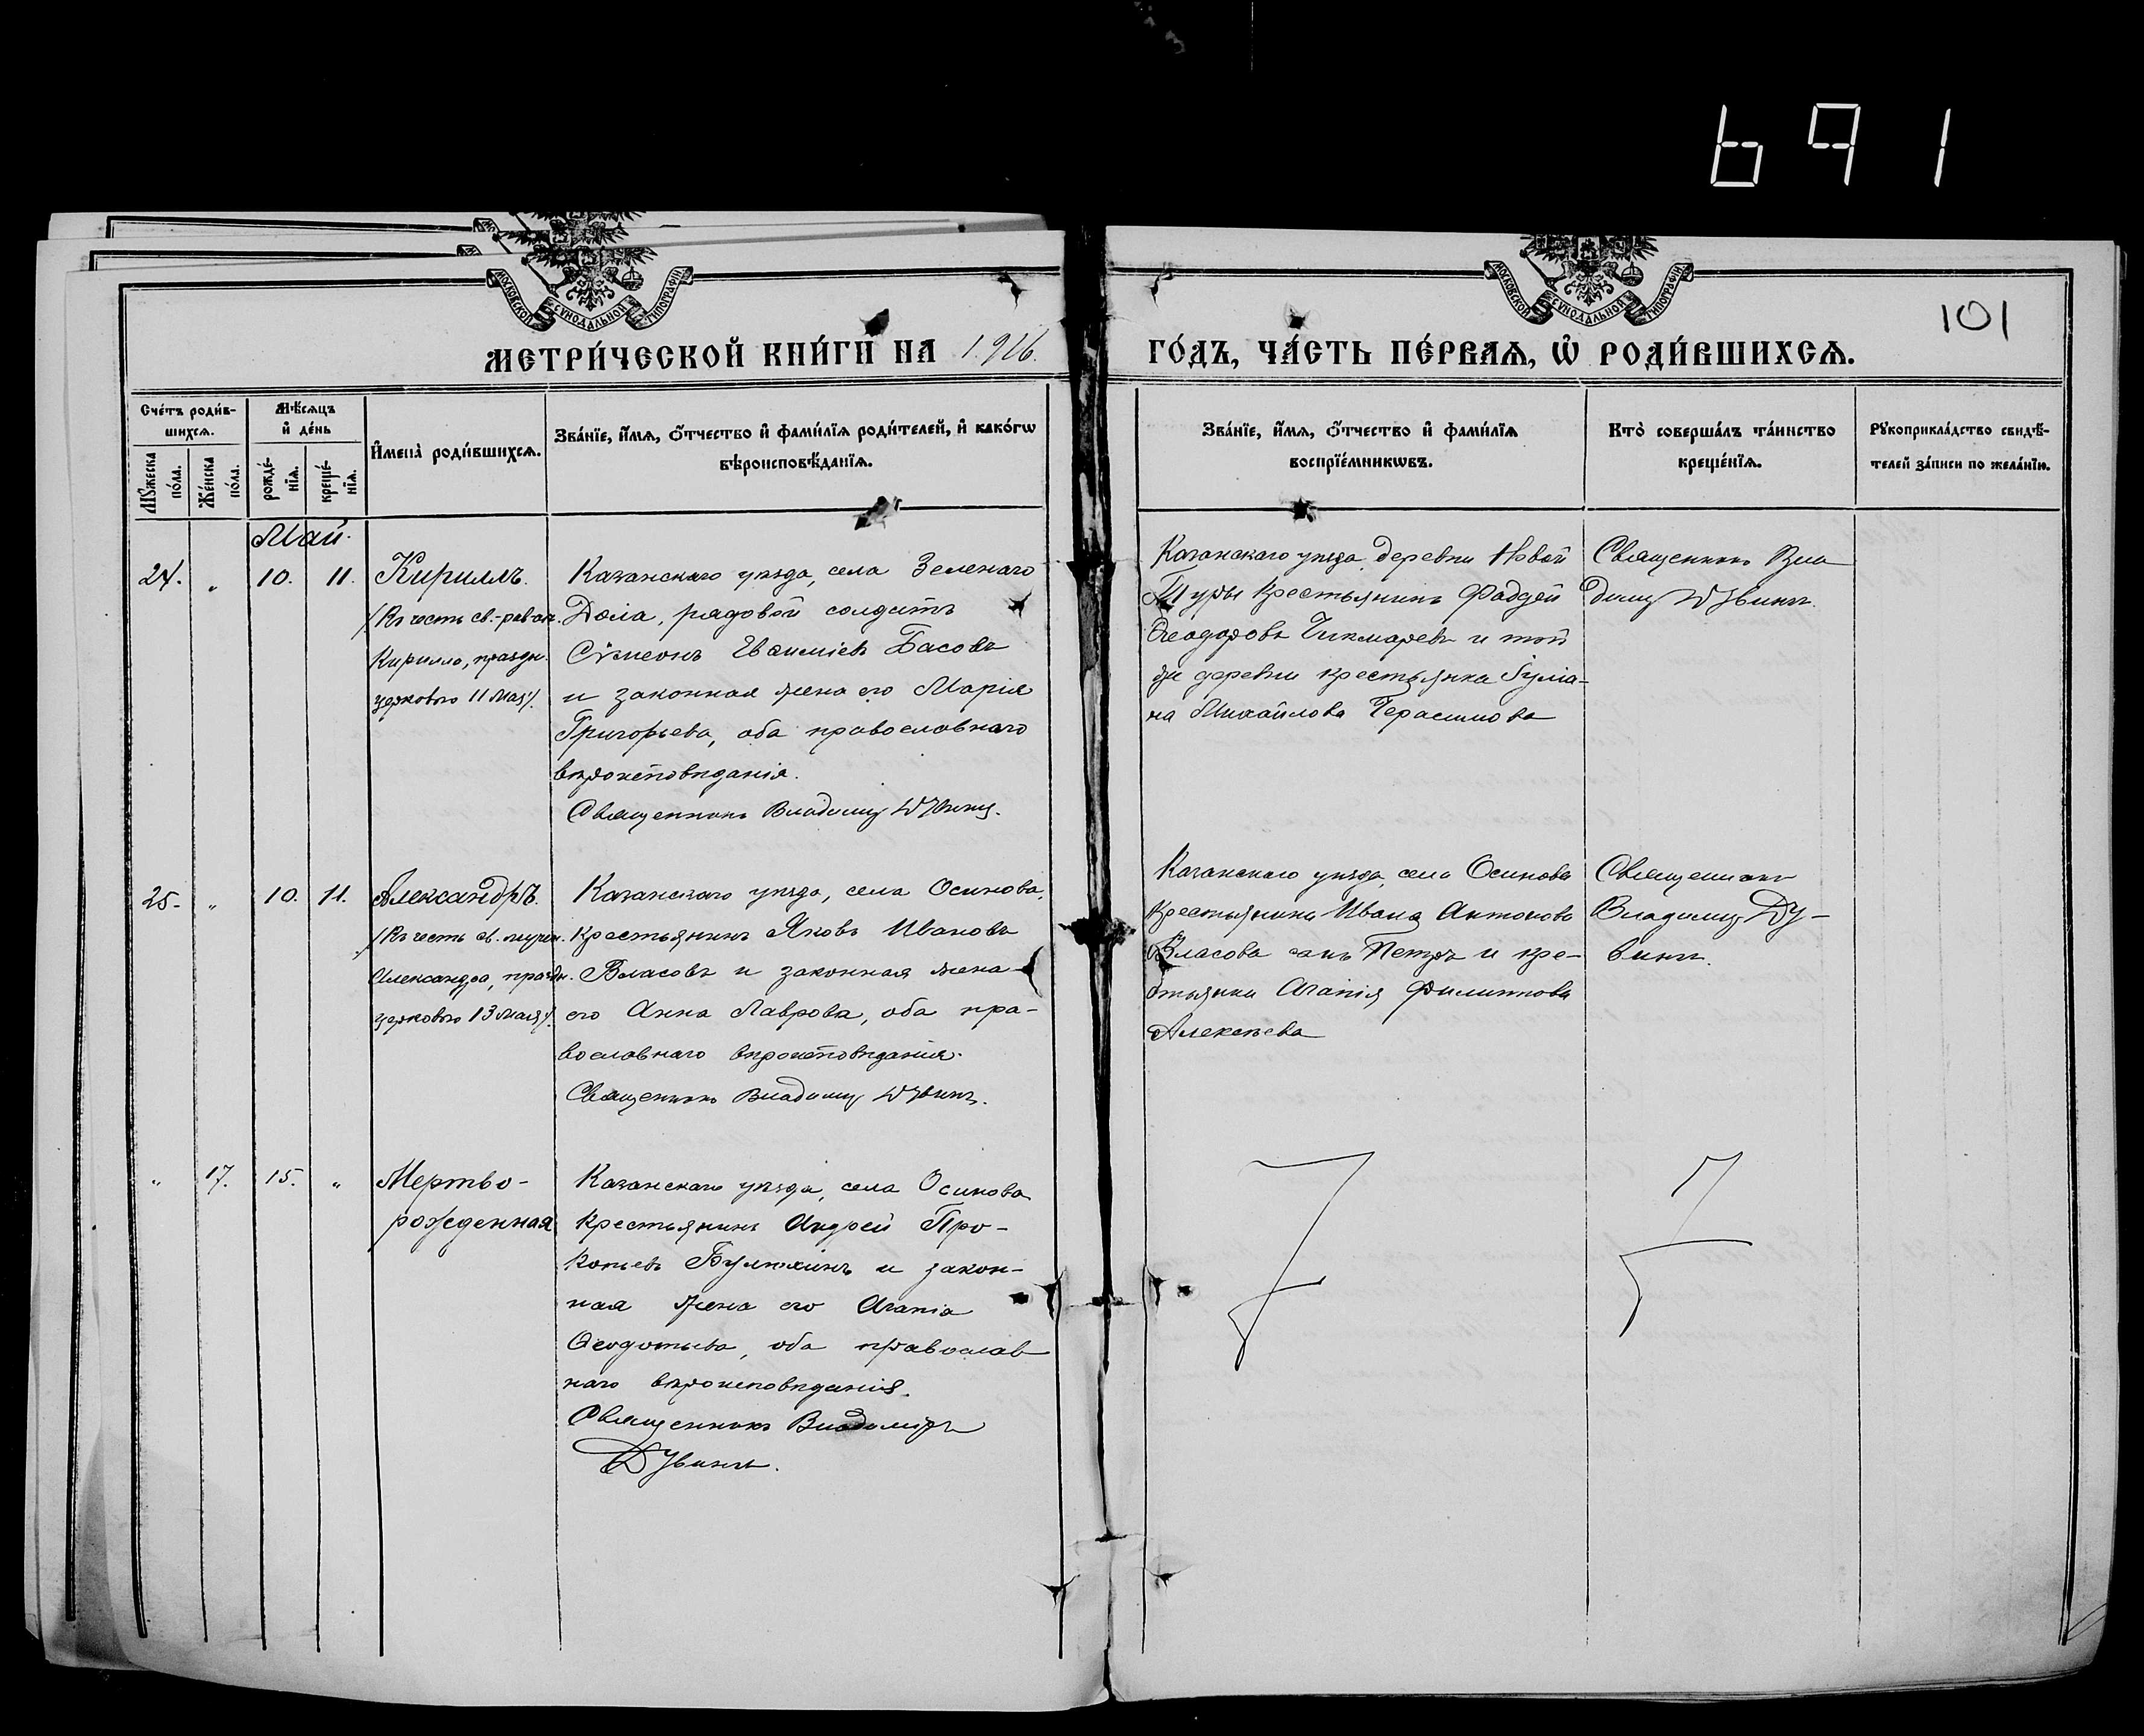 691
МОСКОВСКОЙ СУНОДАЛЬНОЙ ТИПОГРАФІИ
МОСКОВСКОЙ СУНОДАЛЬНОЙ ТИПОГРАФІИ
101
МЕТРИ́ЧЕСКОЙ КНИ́ГИ НА 1916.
ГО́ДЪ, ЧА́СТЬ ПЕ́РВАѦ, Ѡ҆ РОДИ́ВШИХСѦ.
Сче́тъ роди́в-
шихсѧ.
Мѣ́сѧцъ
и҆ де́нь
Мꙋ́жеска
по́ла.
Же́нска
по́ла.
рожде́-
нїѧ.
креще́-
нїѧ.
И҆мена̀ роди́вшихсѧ.
Зва́нїе, и҆́мѧ, ѻ҆́тчество и҆ фами́лїѧ роди́телей, и҆ како́гѡ
вѣроисповѣ́данїѧ.
Зва́нїе, и҆́мѧ, ѻ҆́тчество и҆ фами́лїѧ
воспрїе́мникѡвъ.
Кто̀ соверша́лъ та́инство
креще́нїѧ.
Рꙋкоприкла́дство свидѣ́-
телей за́писи по жела́нїю.
Май.
24. „ 10. 11. Кириллъ.
/Въ честь св.-рав-ап.
Кирилла, праздн.
церковью 11 мая/.
Казанскаго уѣзда, села Зеленаго
Дола, рядовой солдатъ
Сѵмеонъ Евѳиміевъ Басовъ
и законная жена его Марія
Григорьева, оба православнаго
вѣроисповѣданія.
Священникъ Владиміръ Дувинъ.
Казанскаго уѣзда, деревни Новой
Туры крестьянинъ Фаддей
Ѳеодоровъ Чикмаревъ и той
же деревни крестьянка Іуліа-
на Михайлова Герасимова
Священникъ Вла
диміръ Дувинъ.
25. „ 10. 11. Александръ.
/Въ честь св. мучен.
Александра, праздн.
церковью 13 мая/.
Казанскаго уѣзда, села Осинова,
крестьянинъ Яковъ Ивановъ
Власовъ и законная жена
его Анна Лаврова, оба пра-
вославнаго вѣроисповѣданія.
Священникъ Владиміръ Дувинъ.
Казанскаго уѣзда, села Осинова
крестьянина Ивана Антонова
Власова сынъ Петръ и кре-
стьянка Агапія Филиппова
Алексѣева
Священникъ
Владиміръ Ду-
винъ.
„ 17. 15. „ Мертво-
рожденная
Казанскаго уѣзда, села Осинова
крестьянинъ Андрей Про-
копьевъ и закон-
ная жена его Агапія
Ѳеодотьева, оба православ
наго вѣроисповѣданія.
Священникъ Владиміръ
Дувинъ.